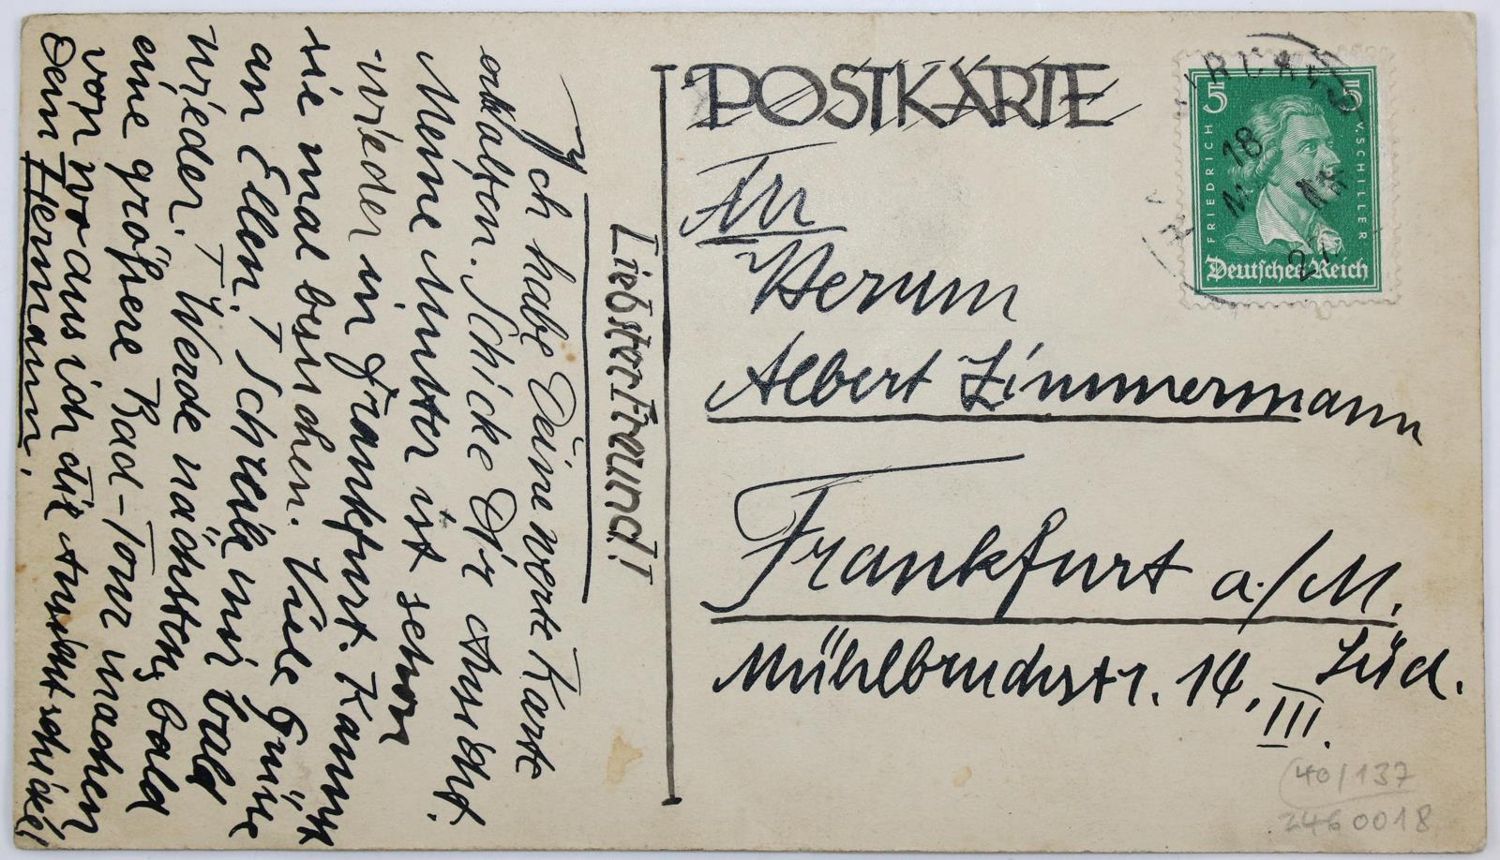 Liebster Freund!
Ich habe Deine werte Karte
erhalten. Schicke Dir Ansicht.
Meine Mutter ist schon
wieder in Frankfurt. Kannst
sie mal besuchen. Viele Grüße
an Ellen! Schreibe mir bald
wieder. Werde nächstens, bald
eine größere Rad-Tour machen
von wo aus ich dir Ansicht schicke!
Dein Hermann.
POSTKARTE
An
Herrn
Albert Zimmermann
Frankfurt a./M.
Süd.
Mühlbruchstr. 14, III.
5 5
FRIEDRICH V. SCHILLER
Deutsches Reich
18
27
40/137
2460018